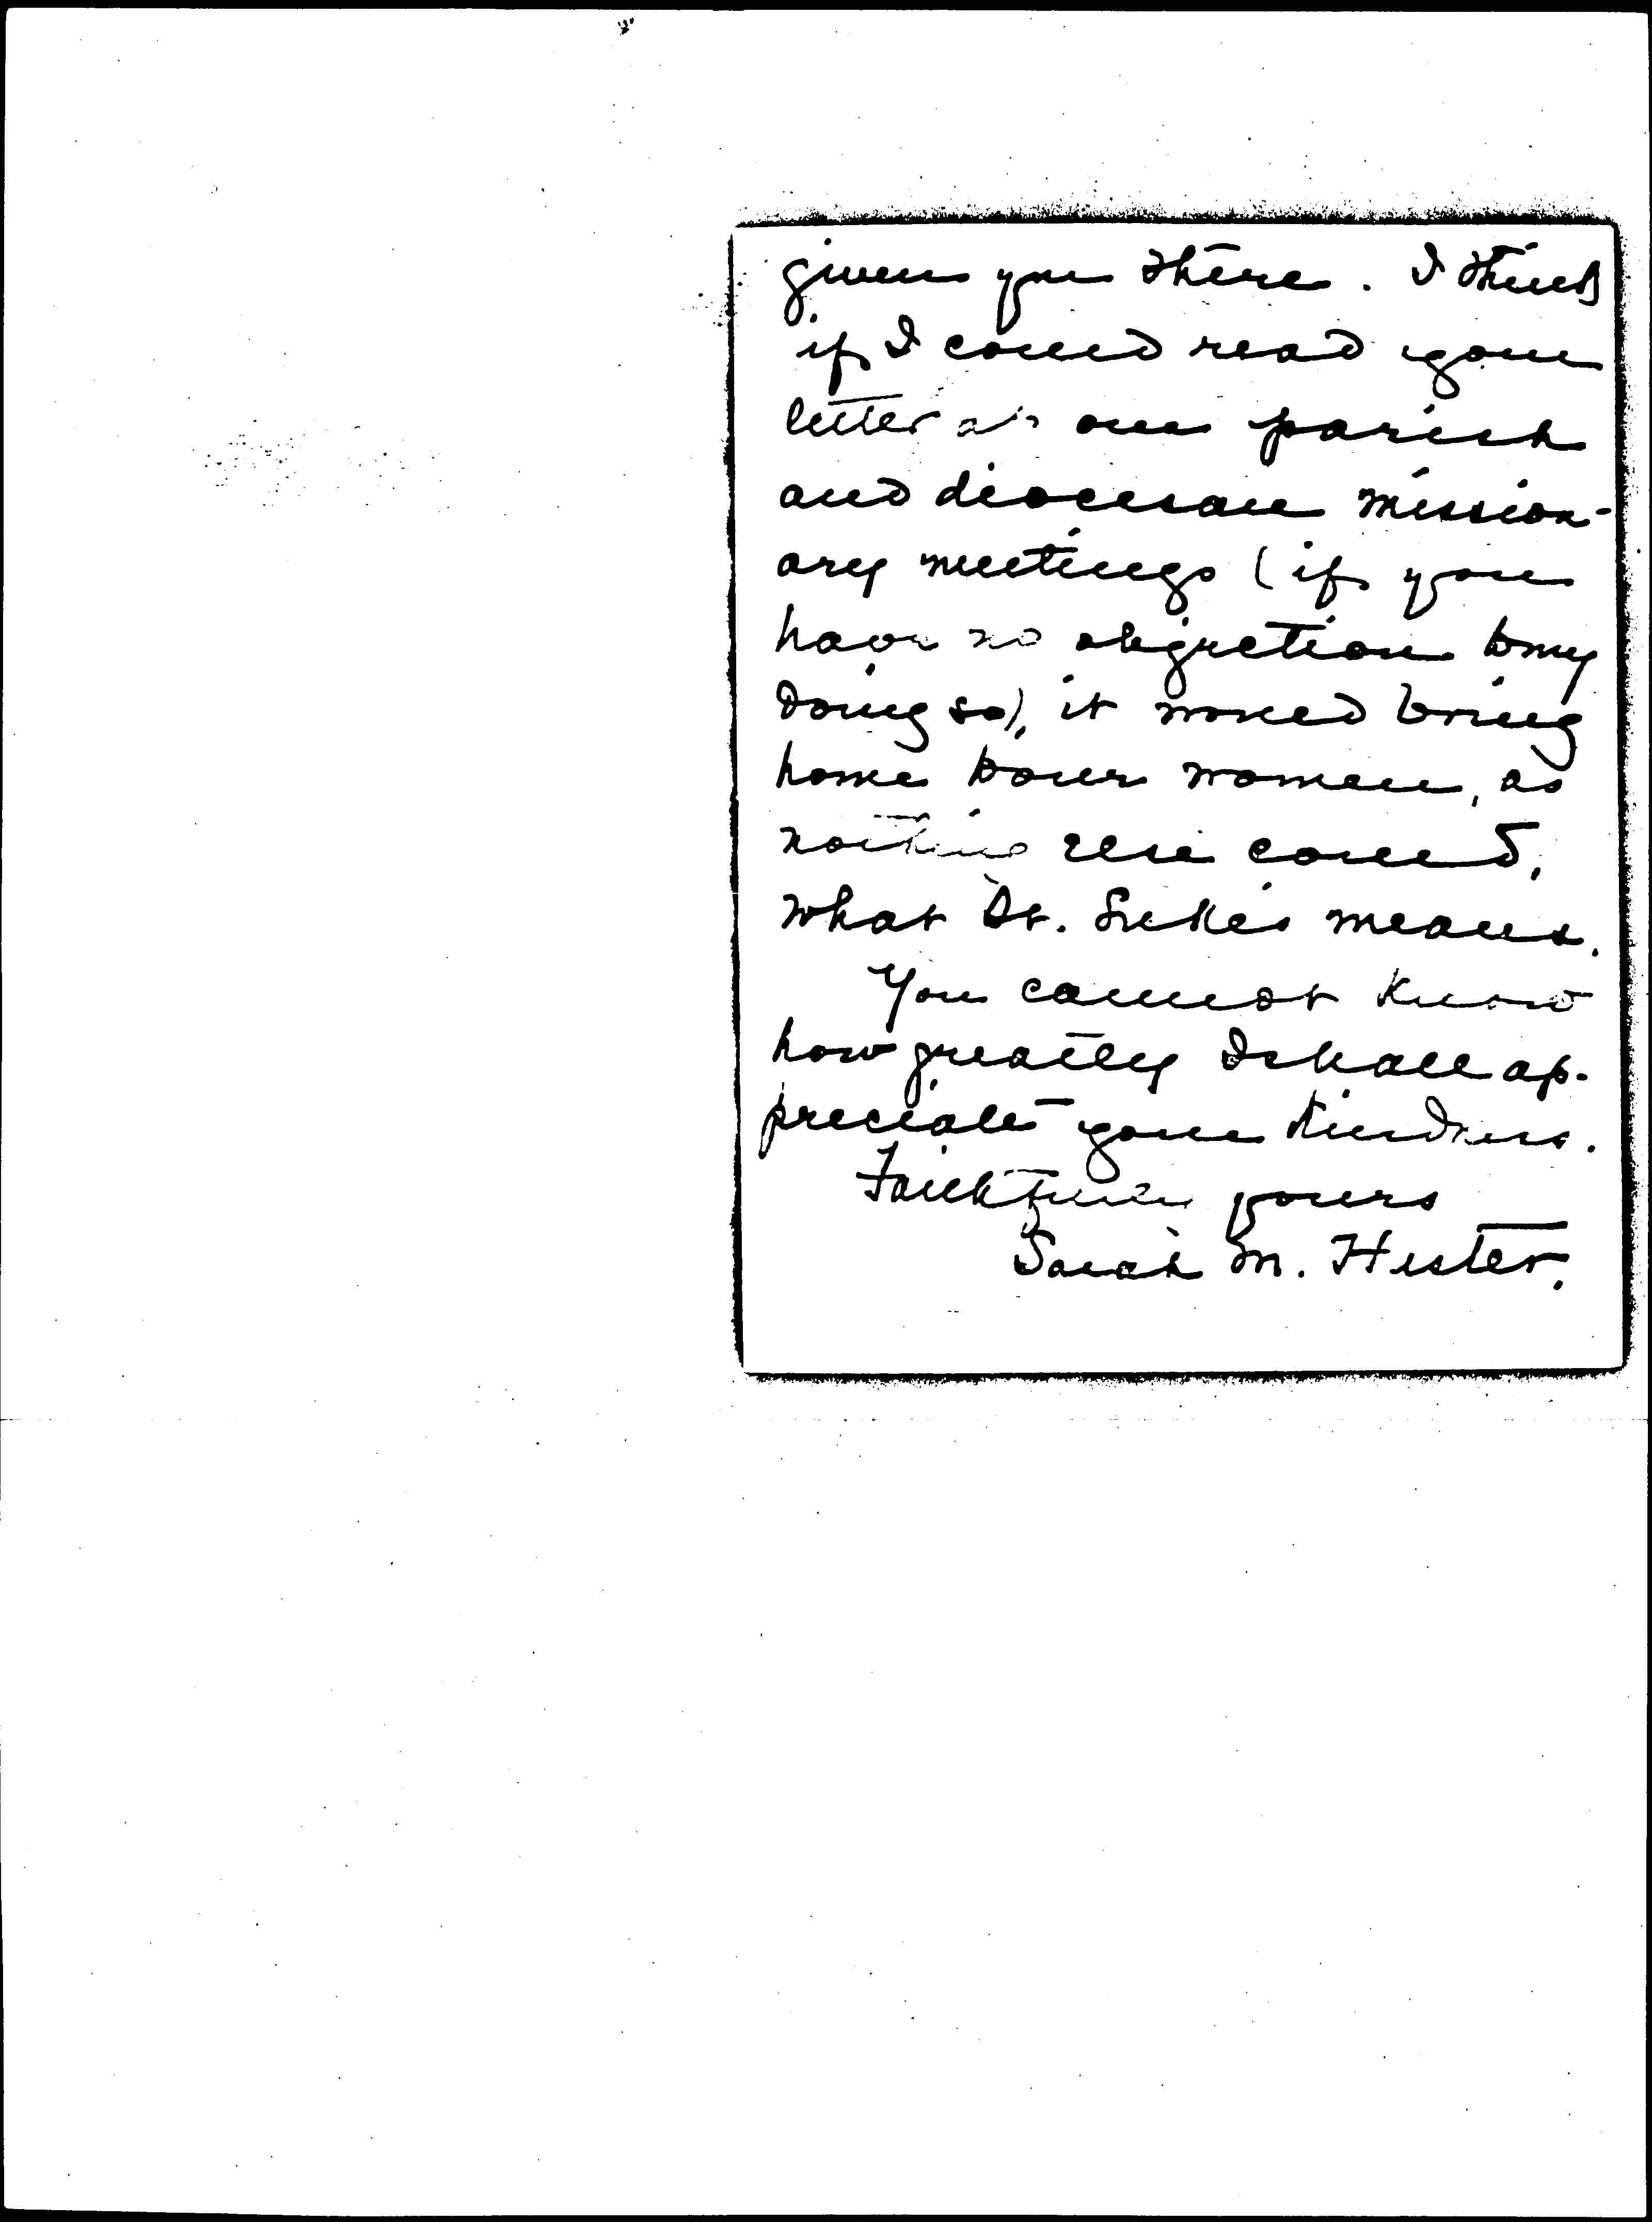 given you there. I think
if I could read your
letter at our parish
and diocesan mission-
ary meetings (if you
have no objection to my
doing so), it would bring
home to our women, as
nothing else could,
what St. Luke's means.
You cannot know
how greatly I shall ap-
preciate your kindness.
Faithfully yours
Sarah M. Hester.